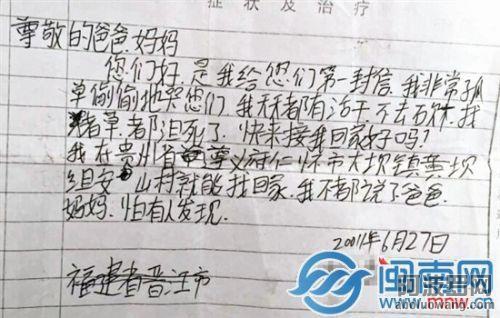 症状及治疗
尊敬的爸爸.妈妈
您们好.是我给您们第一封信.我非常孤
单偷偷地哭您们.我天天都有活干.不去石
猪草.都迫死了.快来接我回家好吗?
我在贵州省 尊义府仁怀市大坝镇黄坝
组安 山村就能找回家.我不都说了爸爸.
妈妈.怕有人发现.
2001年6月27日
福建省晋江市
闽南网
www.mnw.cn
aboluowang.com